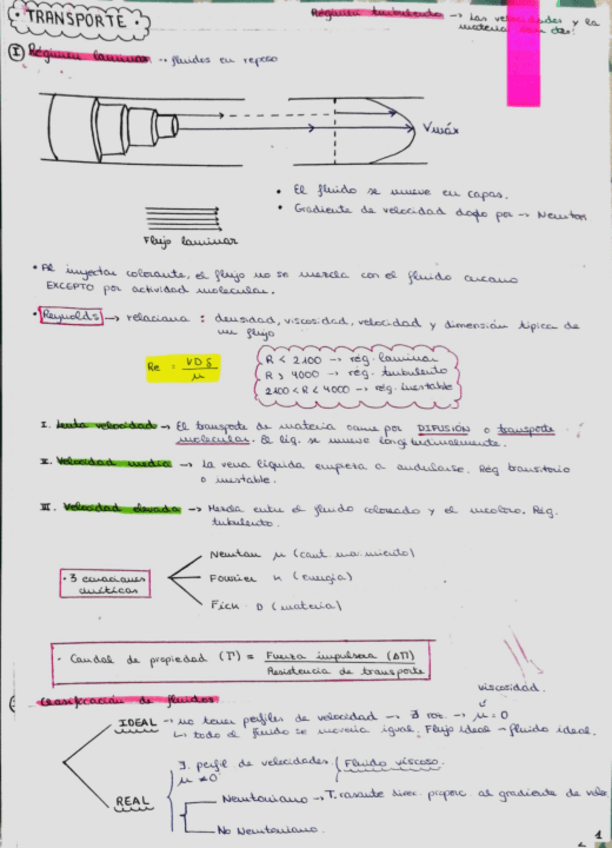 • TRANSPORTE •
Régimen turbulento → Las velocidades y la
materia
I Régimen laminar → fluidos en reposo
Vmáx
• El fluido se mueve en capas.
• Gradiente de velocidad dado por → Newton
Flujo laminar
• Al inyectar colorante, el flujo no se mezcla con el fluido
EXCEPTO por actividad molecular.
• Reynolds → relaciona : densidad, viscosidad, velocidad y dimensión típica de
un flujo
Re = VDδ / μ
R < 2100 → rég. laminar
R > 4000 → rég. turbulento
2100 < R < 4000 → rég. inestable
I. Lenta velocidad → El transporte de materia ocurre por DIFUSIÓN o transporte
molecular. El líq. se mueve longitudinalmente.
II. Velocidad media → La vena líquida empieza a ondularse. Rég transitorio
o inestable.
III. Velocidad elevada → Mezcla entre el fluido coloreado y el incoloro. Rég.
turbulento.
• 3 ecuaciones
cinéticas
Newton μ (cant. movimiento)
Fourier K (energía)
Fick D (materia)
• Caudal de propiedad (Γ) = Fuerza impulsora (ΔΠ) / Resistencia de transporte
Clasificación de fluidos
viscosidad.
IDEAL → no tener perfiles de velocidad → ∄ roz. → μ = 0
↳ todo el fluido se movería igual. Flujo ideal → fluido ideal.
∃. perfil de velocidades. Fluido viscoso.
μ ≠ 0
REAL
Newtoniano → T. rasante direc. proporc. al gradiente de veloc
No Newtoniano.
1